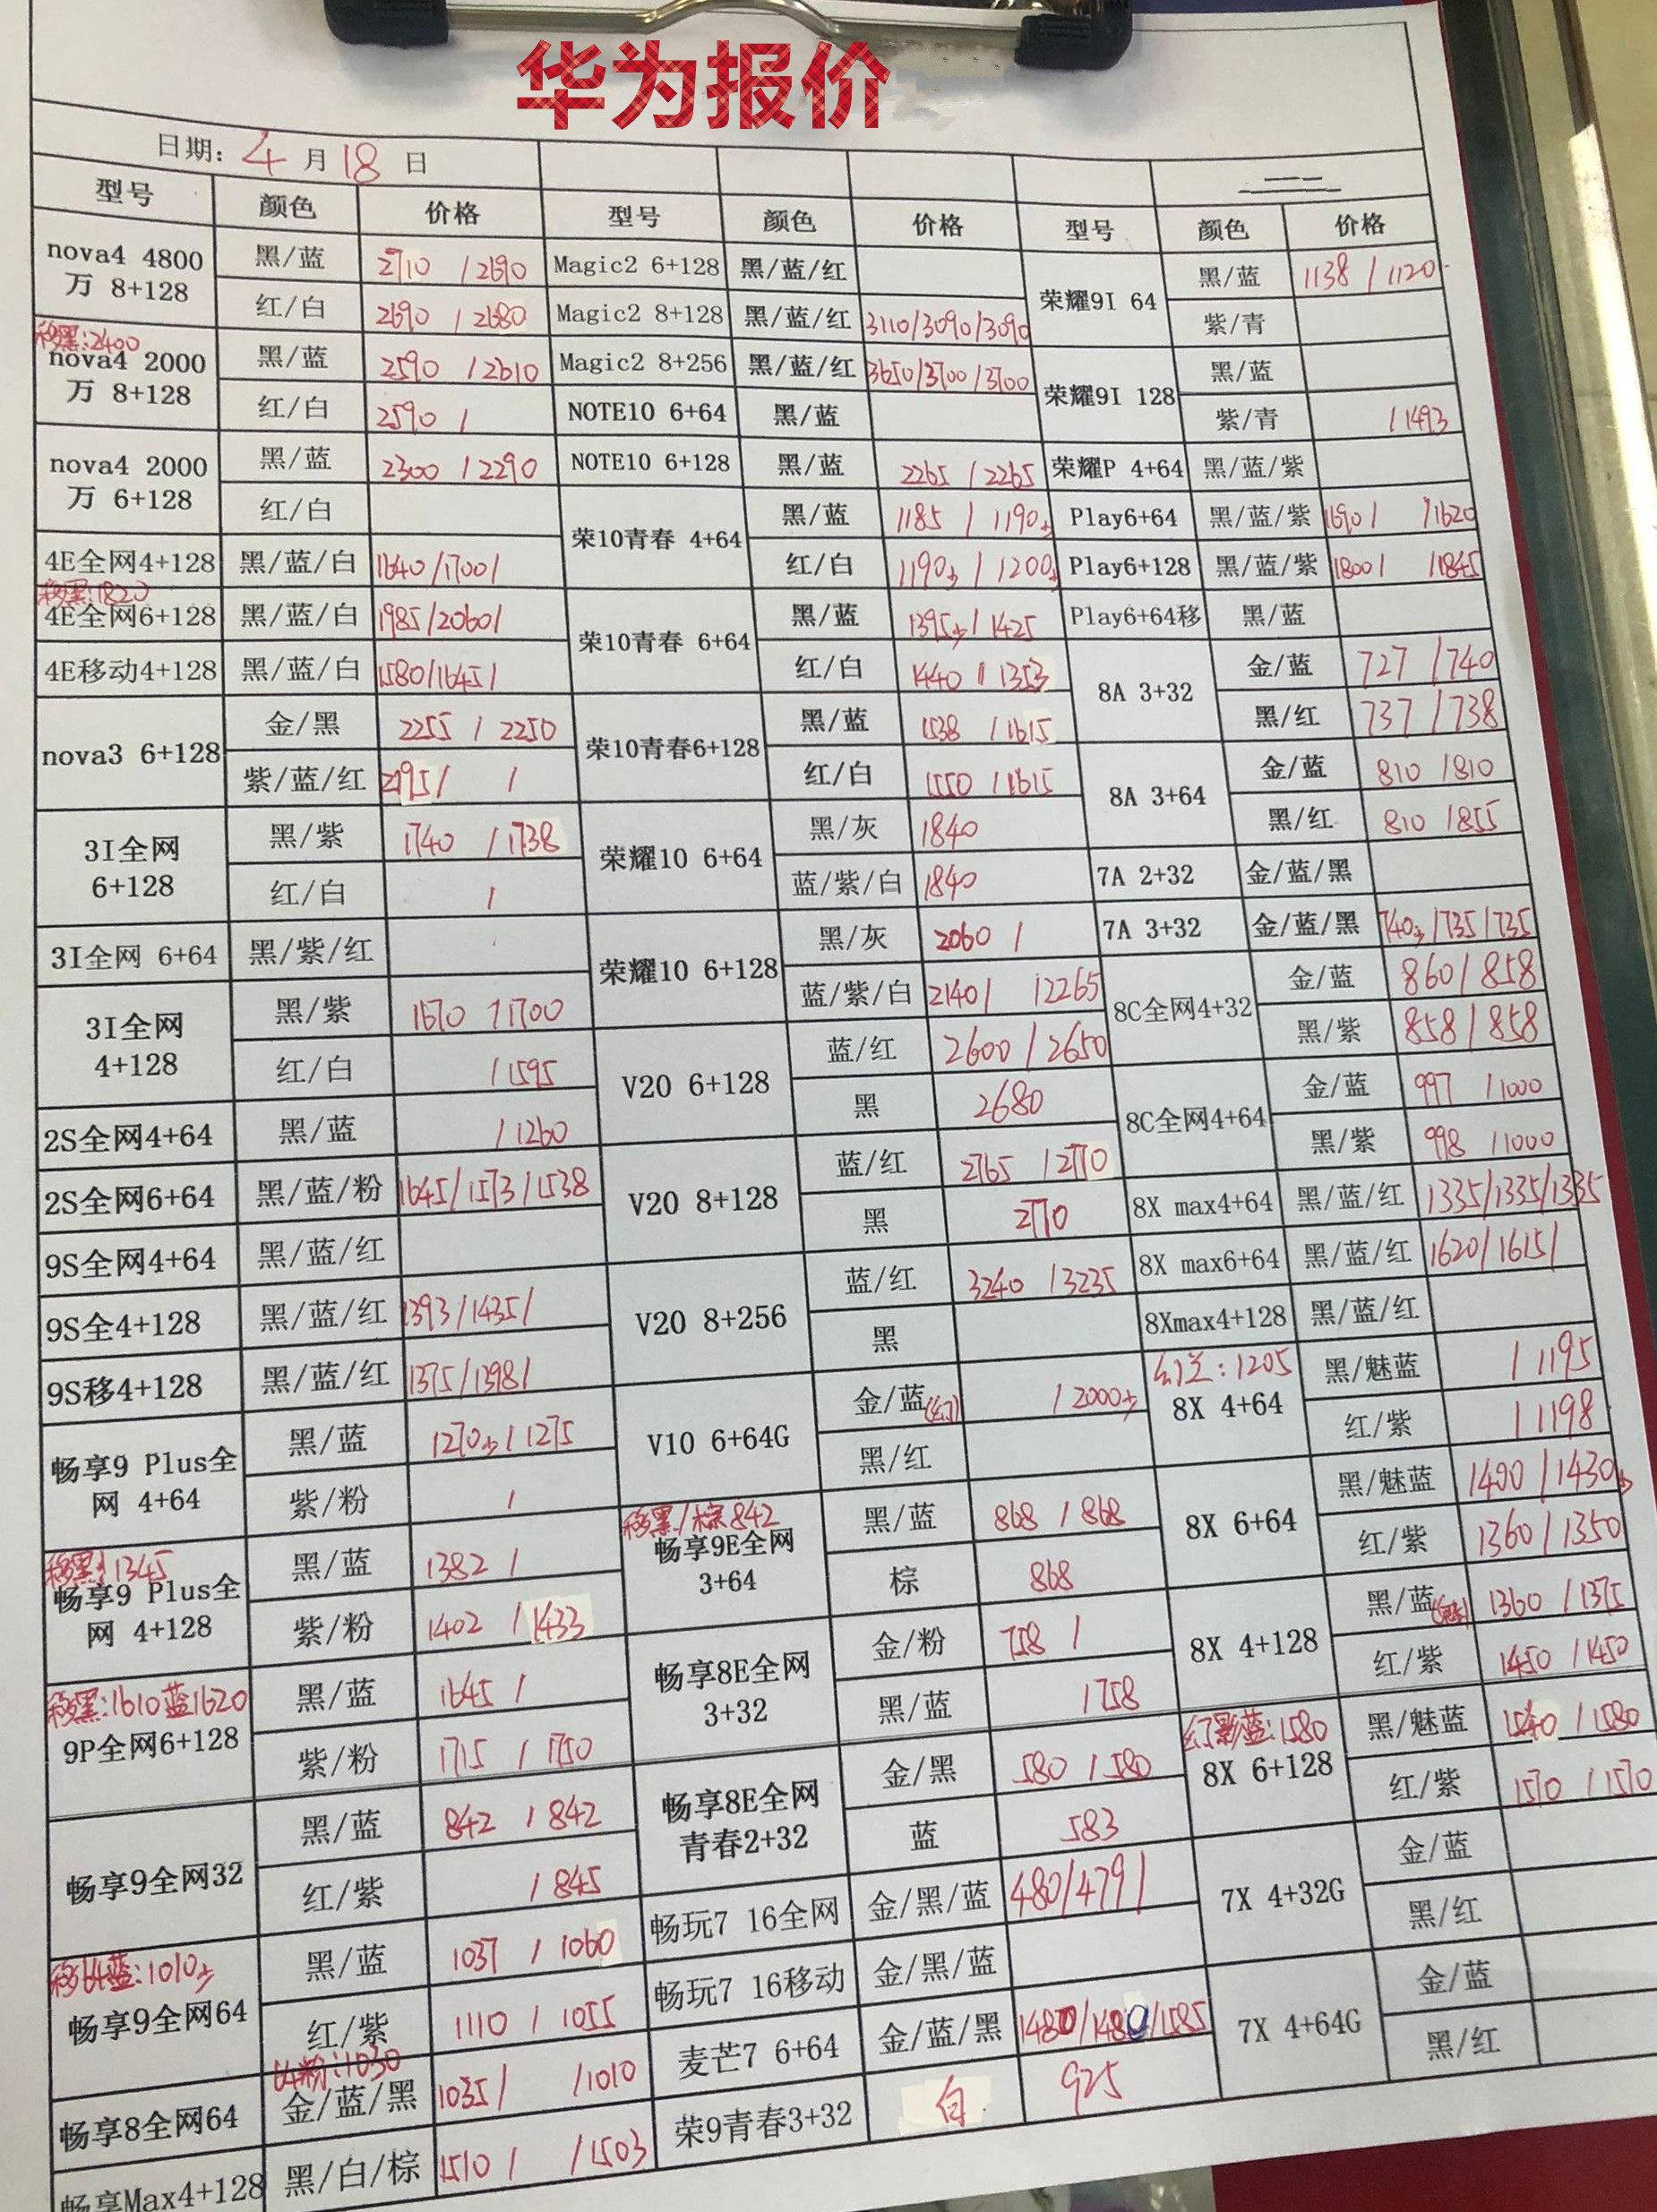 华为报价
日期: 4 月 18 日
型号 颜色 价格 型号 颜色 价格 型号 颜色 价格
nova4 4800万 8+128 黑/蓝 2710 / 2690
红/白 2690 / 2680
移黑:2400
nova4 2000万 8+128 黑/蓝 2590 / 2610
红/白 2590 /
nova4 2000万 6+128 黑/蓝 2300 / 2290
红/白
4E全网4+128 黑/蓝/白 1640/1700/
移黑:1820
4E全网6+128 黑/蓝/白 1985/2060/
4E移动4+128 黑/蓝/白 1580/1645/
nova3 6+128 金/黑 2255 / 2250
紫/蓝/红 2195/ /
3I全网 6+128 黑/紫 1740 / 1738
红/白 /
3I全网 6+64 黑/紫/红
3I全网 4+128 黑/紫 1670 / 1700
红/白 / 1595
2S全网4+64 黑/蓝 / 1260
2S全网6+64 黑/蓝/粉 1645/1573/1538
9S全网4+64 黑/蓝/红
9S全4+128 黑/蓝/红 1393/1435/
9S移4+128 黑/蓝/红 1375/1398/
畅享9 Plus全网 4+64 黑/蓝 1270少/1275
紫/粉 /
移黑:1345
畅享9 Plus全网 4+128 黑/蓝 1382 /
紫/粉 1402 / 1433
移黑:1610 蓝1620
9P全网6+128 黑/蓝 1645 /
紫/粉 1715 / 1750
畅享9全网32 黑/蓝 842 / 842
红/紫 / 845
移64蓝:1010少
畅享9全网64 黑/蓝 1037 / 1060
红/紫 1110 / 1055
64粉:1030
畅享8全网64 金/蓝/黑 1035/ /1010
畅享Max4+128 黑/白/棕 1510 / /1503
Magic2 6+128 黑/蓝/红
Magic2 8+128 黑/蓝/红 3110/3090/3090
Magic2 8+256 黑/蓝/红 3650/3700/3700
NOTE10 6+64 黑/蓝
NOTE10 6+128 黑/蓝 2265 / 2265
荣10青春 4+64 黑/蓝 1185 / 1190少
红/白 1190少 / 1200少
荣10青春 6+64 黑/蓝 1395少/ 1425
红/白 1440 / 1353
荣10青春6+128 黑/蓝 1538 / 1615
红/白 1550 / 1615
荣耀10 6+64 黑/灰 1840
蓝/紫/白 1840
荣耀10 6+128 黑/灰 2060 /
蓝/紫/白 2140/ /2265
V20 6+128 蓝/红 2600 / 2650
黑 2680
V20 8+128 蓝/红 2765 / 2770
黑 2770
V20 8+256 蓝/红 3240 / 3235
黑
V10 6+64G 金/蓝(幻) / 2000少
黑/红
移黑/棕842
畅享9E全网 3+64 黑/蓝 868 / 868
棕 868
畅享8E全网 3+32 金/粉 758 /
黑/蓝 /758
畅享8E全网 青春2+32 金/黑 580 / 580
蓝 583
畅玩7 16全网 金/黑/蓝 480/479/
畅玩7 16移动 金/黑/蓝
麦芒7 6+64 金/蓝/黑 1480/1480/1585
荣9青春3+32 白 925
荣耀9I 64 黑/蓝 1138 / 1120
紫/青
荣耀9I 128 黑/蓝
紫/青 / 1493
荣耀P 4+64 黑/蓝/紫
Play6+64 黑/蓝/紫 1690/ /1620
Play6+128 黑/蓝/紫 1800/ /1845
Play6+64移 黑/蓝
8A 3+32 金/蓝 727 / 740
黑/红 737 / 738
8A 3+64 金/蓝 810 / 810
黑/红 810 / 855
7A 2+32 金/蓝/黑
7A 3+32 金/蓝/黑 740少/735/735
8C全网4+32 金/蓝 860 / 858
黑/紫 858 / 858
8C全网4+64 金/蓝 997 / 1000
黑/紫 998 / 1000
8X max4+64 黑/蓝/红 1335/1335/1335
8X max6+64 黑/蓝/红 1620/1615/
8Xmax4+128 黑/蓝/红
幻兰:1205
8X 4+64 黑/魅蓝 / 1195
红/紫 / 1198
8X 6+64 黑/魅蓝 1400 / 1430少
红/紫 1360 / 1350
8X 4+128 黑/蓝(魅) 1360 / 1375
红/紫 1450 / 1450
幻影蓝:1580
8X 6+128 黑/魅蓝 1540 / 1580
红/紫 1570 / 1570
7X 4+32G 金/蓝
黑/红
7X 4+64G 金/蓝
黑/红